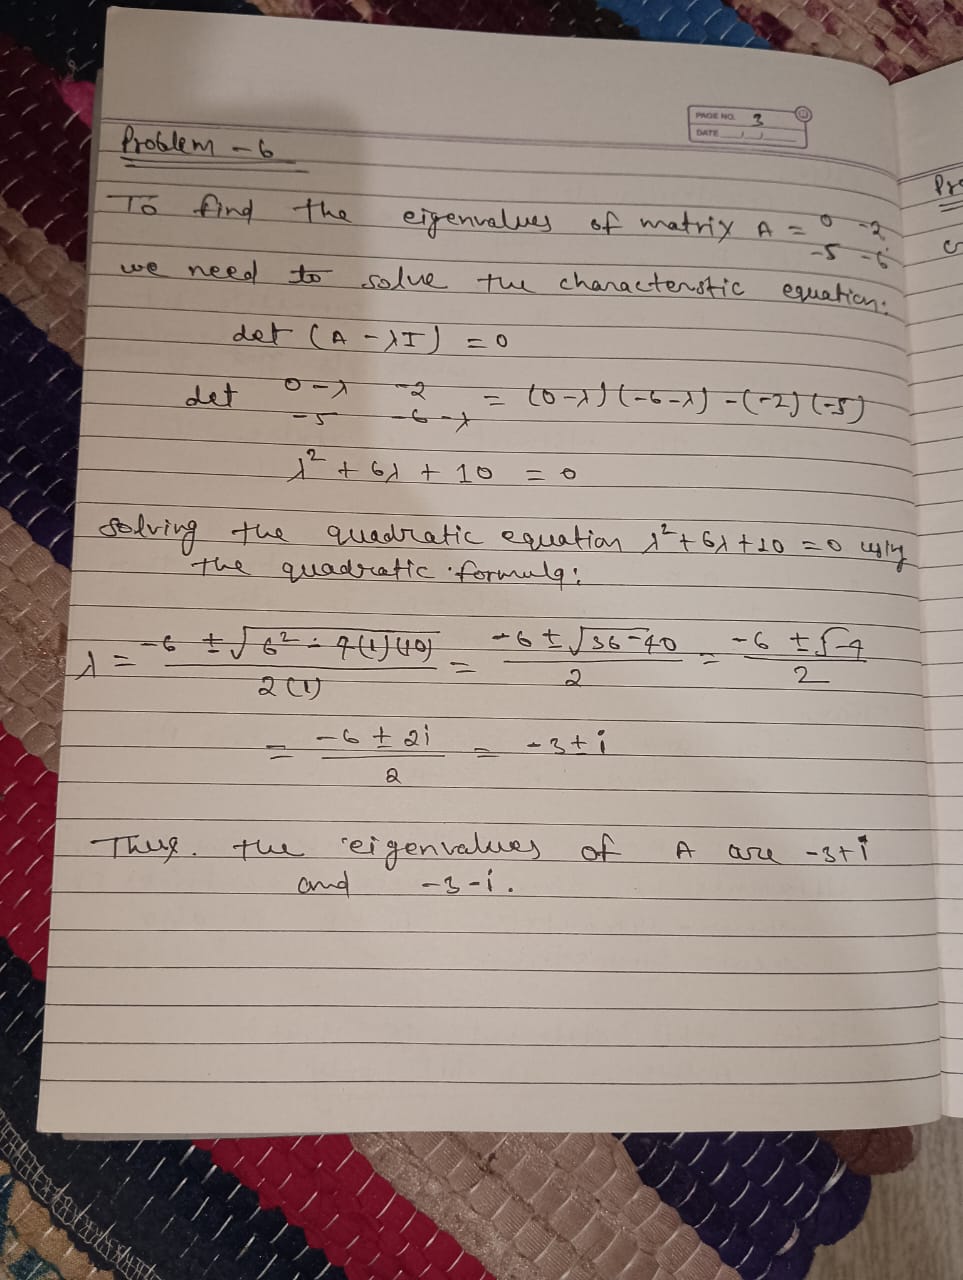 PAGE NO. 3
DATE
Problem - 6
To find the eigenvalues of matrix A = 0 -2
-5 -6
we need to solve the characteristic equation:
det (A - λI) = 0
det 0-λ -2 = (0-λ)(-6-λ) - (-2)(-5)
-5 -6-λ
λ² + 6λ + 10 = 0
solving the quadratic equation λ² + 6λ + 10 = 0 using
the quadratic formula:
λ = -6 ± √6² - 4(1)(10) / 2(1) = -6 ± √36-40 / 2 = -6 ± √-4 / 2
= -6 ± 2i / 2 = -3 ± i
Thus. the eigenvalues of A are -3+i
and -3-i.